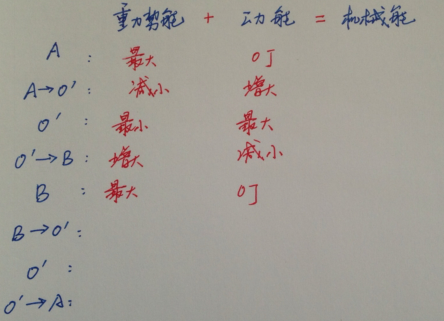 重力势能 + 动能 = 机械能
A : 最大 0J
A→O′ : 减小 增大
O′ : 最小 最大
O′→B : 增大 减小
B : 最大 0J
B→O′ :
O′ :
O′→A :